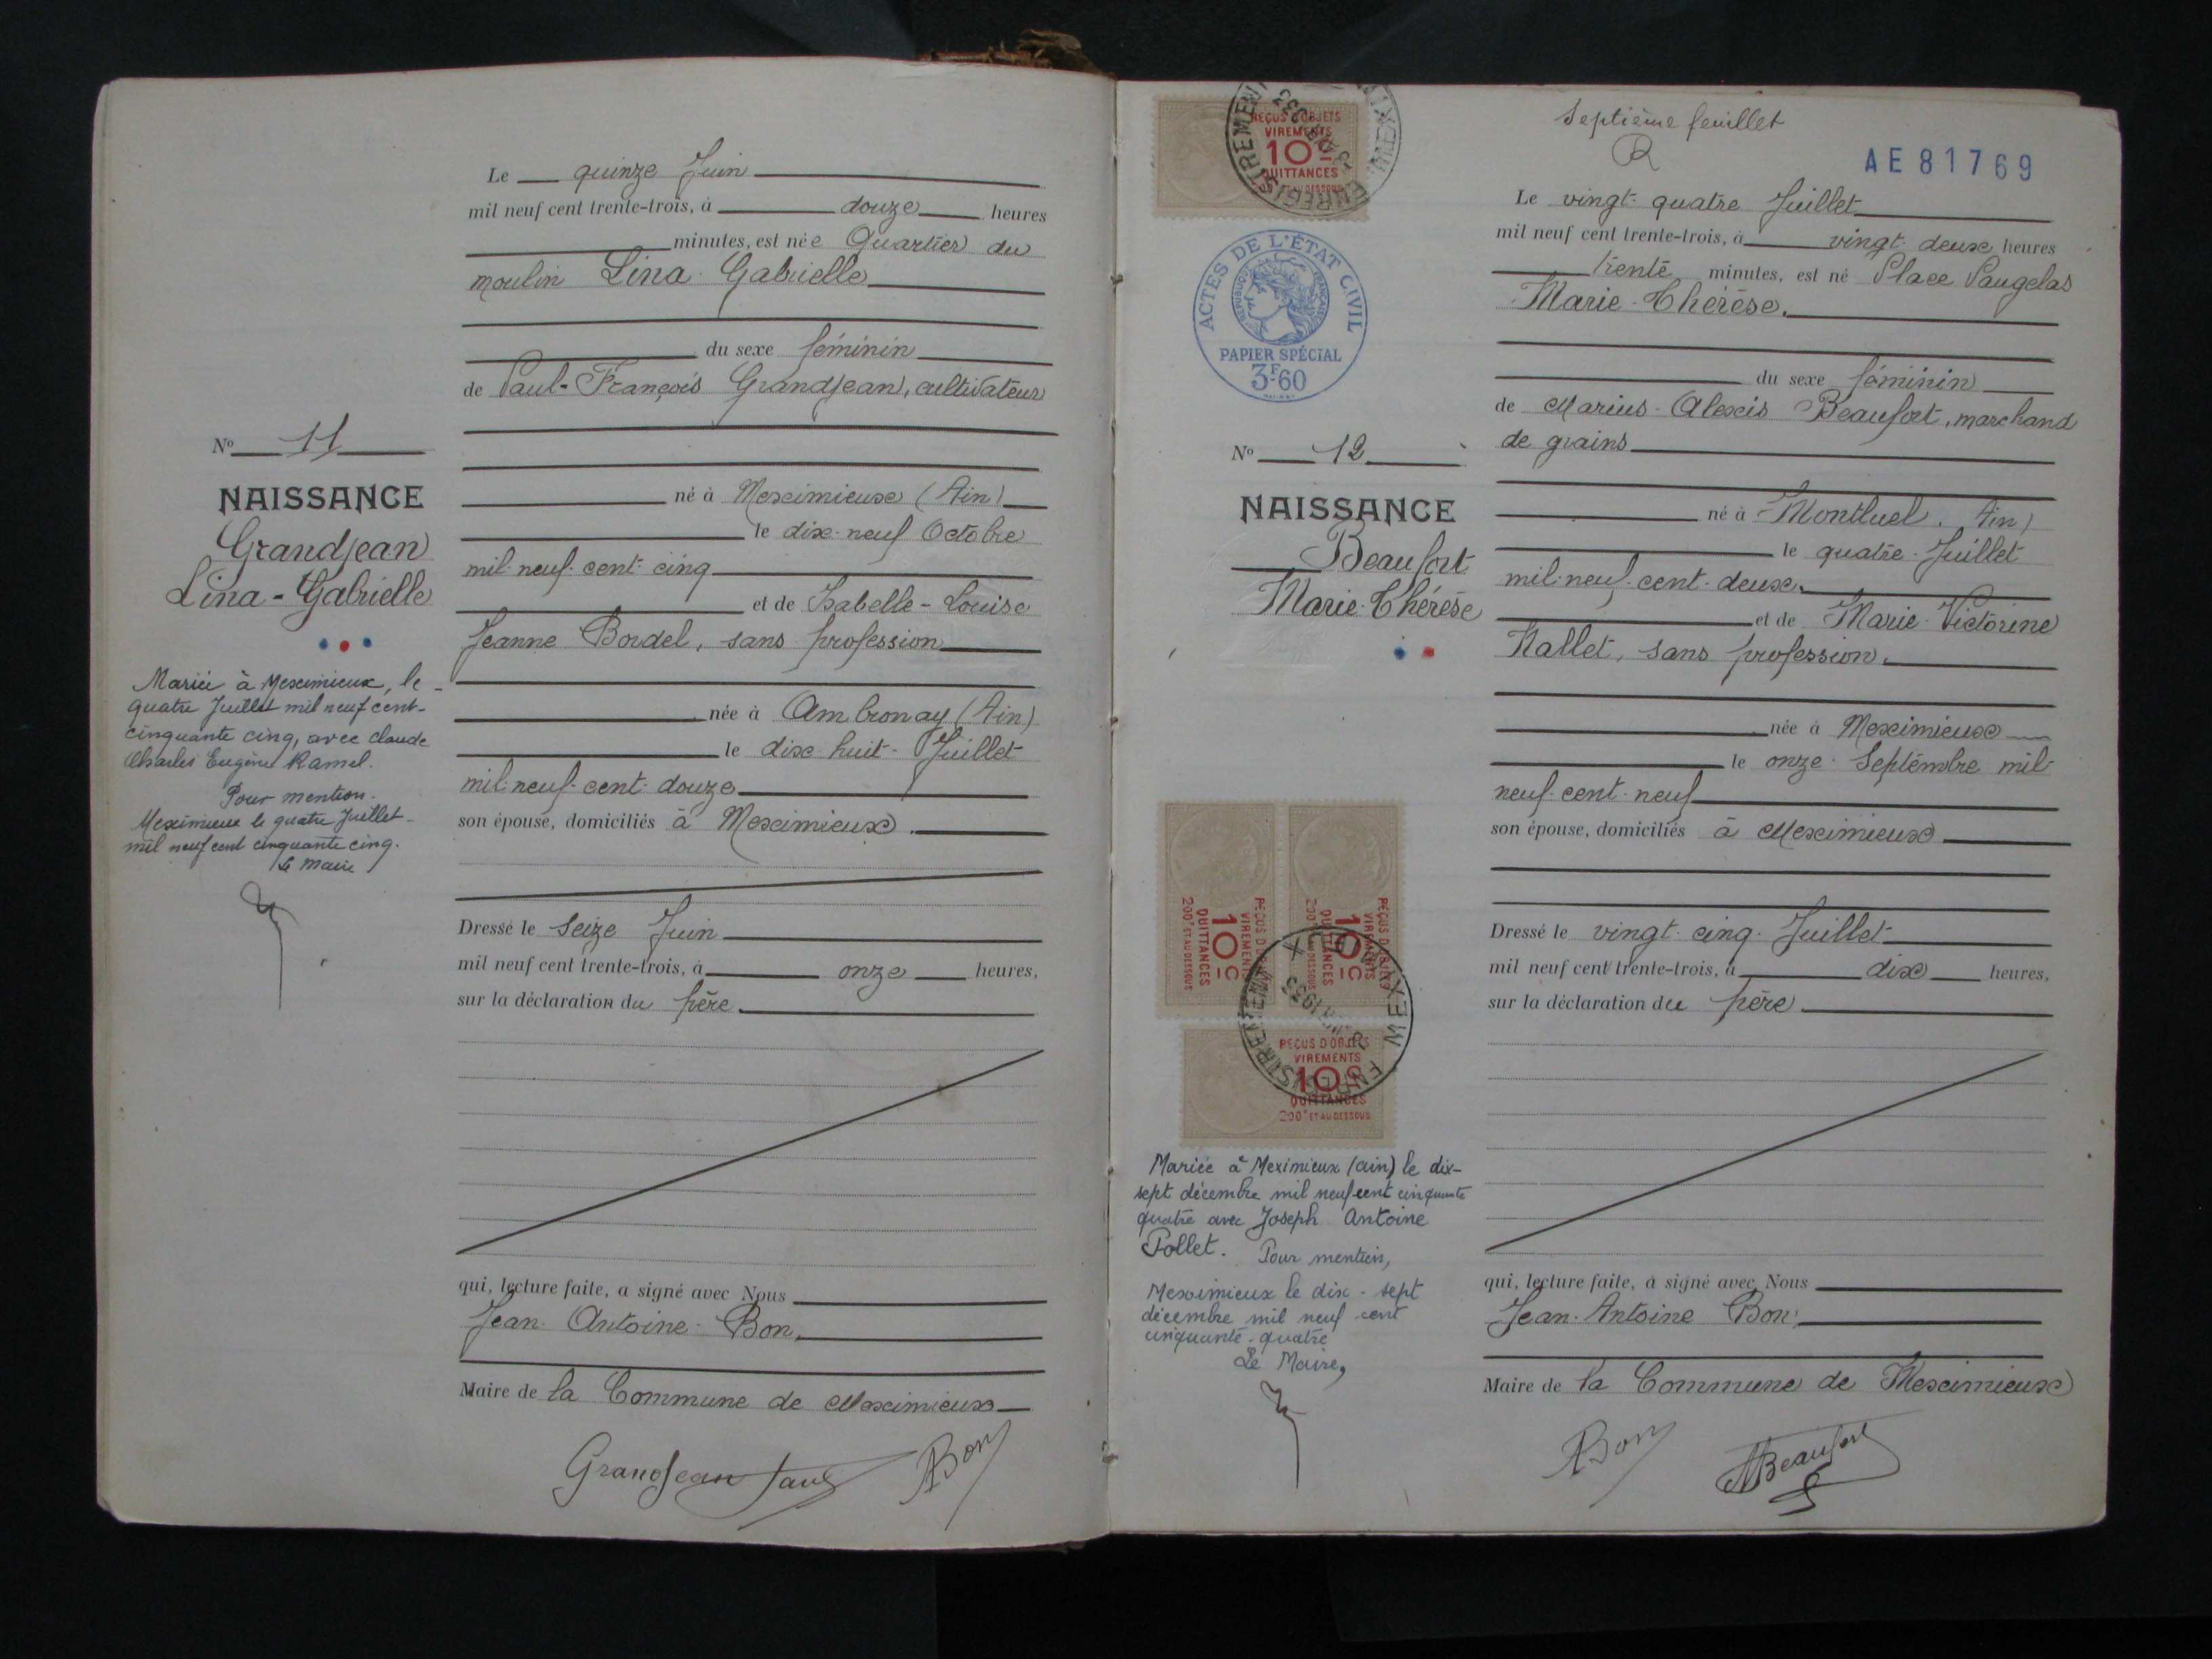 Le quinze Juin
mil neuf cent trente-trois, à douze heures
minutes, est née Quartier du
moulin Lina Gabrielle
du sexe féminin
de Paul-François Grandjean, cultivateur
Nº 11
NAISSANCE
Grandjean
Lina-Gabrielle
né à Meximieux (Ain)
le dix-neuf Octobre
mil-neuf-cent-cinq
et de Isabelle-Louise
Jeanne Bordel, sans profession
née à Ambronay (Ain)
le dix-huit-Juillet
mil-neuf-cent-douze
son épouse, domiciliés à Meximieux.
Mariée à Meximieux, le
quatre Juillet mil neuf cent-
cinquante cinq, avec Claude
Charles Eugène Ramel.
Pour mention.
Meximieux le quatre Juillet
mil neuf cent cinquante cinq.
Le Maire
Dressé le seize Juin
mil neuf cent trente-trois, à onze heures,
sur la déclaration du père.
qui, lecture faite, a signé avec Nous
Jean-Antoine-Bon.
Maire de la Commune de Meximieux
Grandjean Paul
ABon
Septième feuillet
AE 81769
REÇUS D'OBJETS
VIREMENTS
10c
QUITTANCES
ENREGISTREMENT
ACTES DE L'ÉTAT CIVIL
RÉPUBLIQUE FRANÇAISE
PAPIER SPÉCIAL
3F60
Le vingt-quatre Juillet
mil neuf cent trente-trois, à vingt-deux heures
trente minutes, est né Place Vaugelas
Marie-Thérèse.
du sexe féminin
de Marius-Alexis Beaufort, marchand
de grains
Nº 12
NAISSANCE
Beaufort
Marie-Thérèse
né à Montluel. Ain)
le quatre-Juillet
mil-neuf-cent-deux.
et de Marie-Victorine
Nallet, sans profession.
née à Meximieux
le onze-Septembre mil-
neuf-cent-neuf
son épouse, domiciliés à Meximieux
REÇUS D'OBJETS
VIREMENTS
10c
QUITTANCES
200F ET AU DESSOUS
REÇUS D'OBJETS
VIREMENTS
10c
QUITTANCES
REÇUS D'OBJETS
VIREMENTS
10c
QUITTANCES
200F ET AU DESSOUS
ENREGISTREMENT
MEXIMIEUX
1933
Mariée à Meximieux (Ain) le dix-
sept décembre mil neuf cent cinquante
quatre avec Joseph Antoine
Pollet. Pour mention,
Meximieux le dix-sept
décembre mil neuf cent
cinquante-quatre
Le Maire,
Dressé le vingt-cinq-Juillet
mil neuf cent trente-trois, à dix heures,
sur la déclaration du père
qui, lecture faite, a signé avec Nous
Jean-Antoine Bon.
Maire de la Commune de Meximieux
ABon
ABeaufort